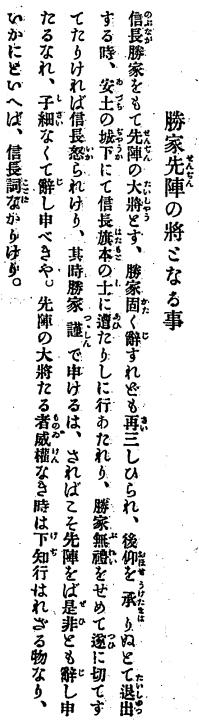 勝家先陣の將となる事
信長勝家をもて先陣の大將とす、勝家固く辭すれども再三しひられ、後仰を承りぬとて退出
する時、安土の城下にて信長旗本の士に遭たりしに行あたれり、勝家無禮をせめて遂に切てす
てたりければ信長怒られけり、其時勝家謹で申けるは、さればこそ先陣をば是非とも辭し申
たるなれ、子細なくて辭し申べきや。先陣の大將たる者威權なき時は下知行はれざる物なり、
いかにといへば、信長詞なかりけり。